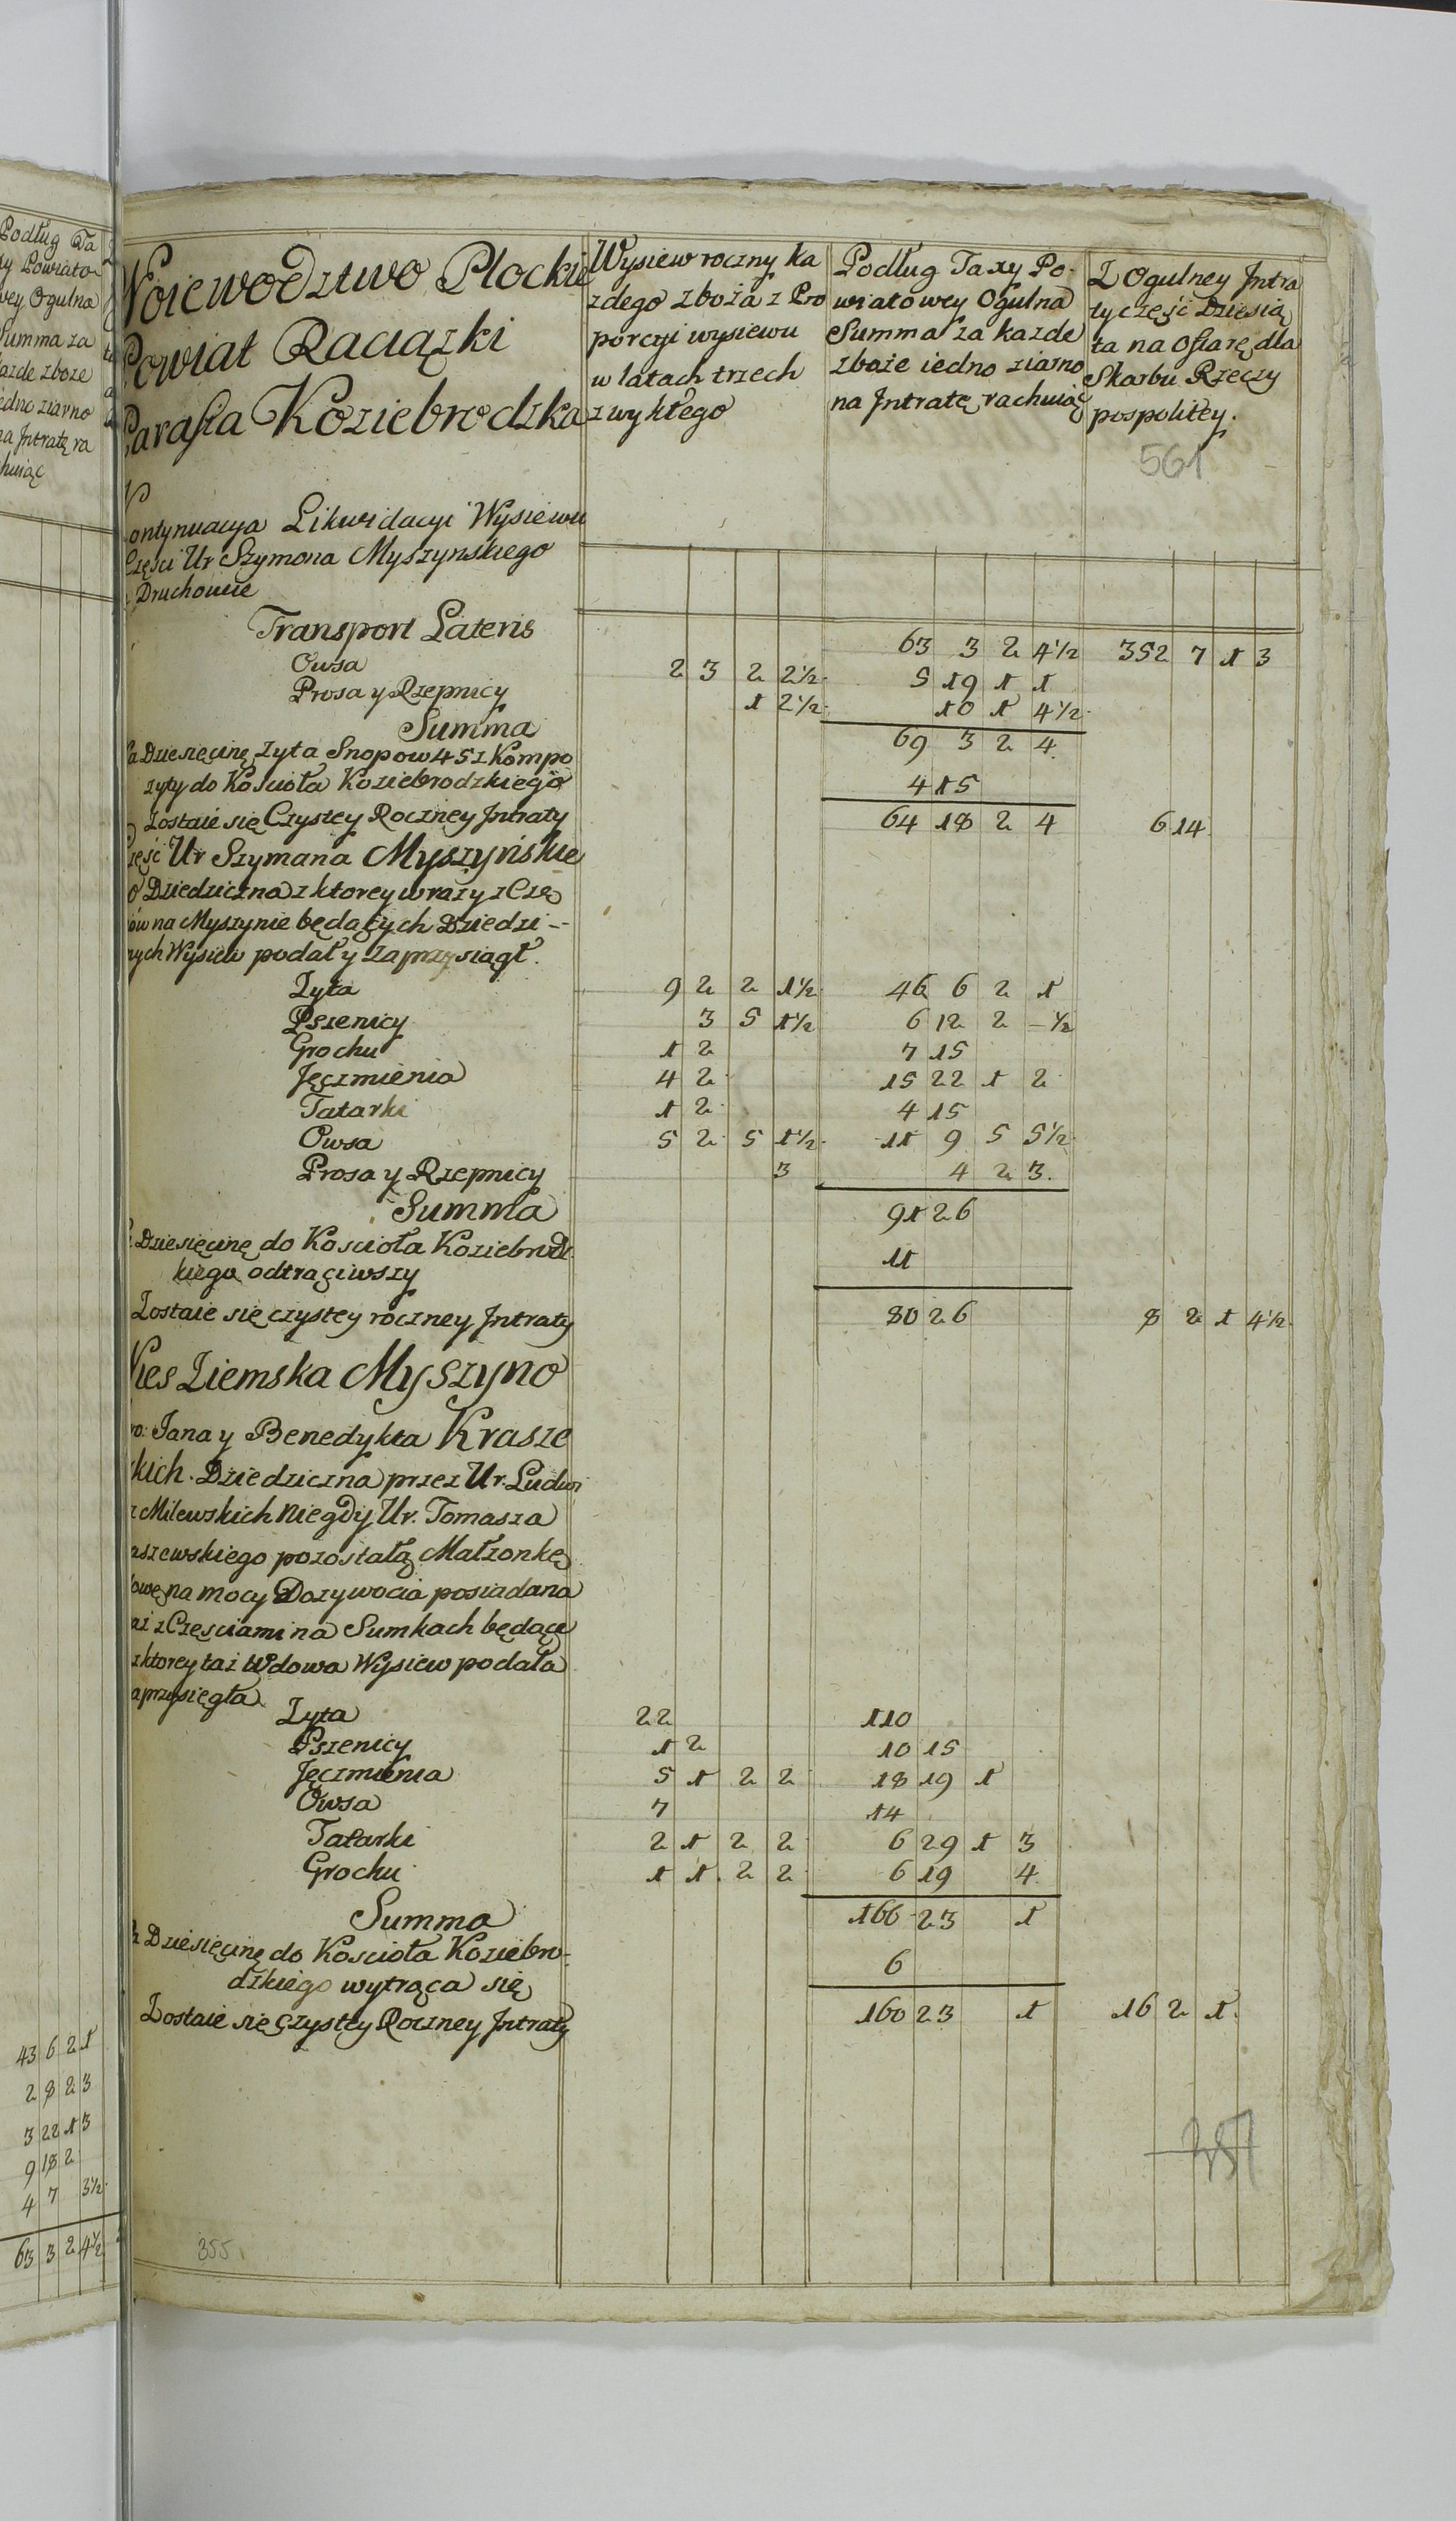 Podług Ta
xy Powiato
wey Ogulna
Summa za
każde zboże
iedno ziarno
na Jntratę ra
chuiąc
43 6 2 1
2 8 2 3
3 22 1 3
9 18 2
4 7 3½
63 3 2 4½
Woiewodztwo Płockie
Powiat Raciązki
Parafia Koziebrodzka
Wysiew roczny ka
zdego zboża z Pro
porcyi wysiewu
w latach trzech
zwykłego
Podług Taxy Po-
wiatowey Ogulna
Summa za kazde
zboże iedno ziarno
na Jntratę rachuiąc
Z Ogulney Jntra
ty część Dziesią
ta na Ofiarę dla
Skarbu Rzeczy
pospolitey.
561
ontynuacya Likwidacyi Wysiewu
Części Ur Szymona Myszynskiego
Druchowie
Transport Lateris 63 3 2 4½ 352 7 1 3
Owsa 2 3 2 2½ 5 19 1 1
Prosa y Rzepnicy 1 2½ 10 1 4½
Summa 69 3 2 4
a Dziesięcinę zyta Snopow 45 z Kompo
zyty do Kościoła Koziebrodzkiego 4 15
Zostaie się Czystey Roczney Jntraty 64 18 2 4 6 14
zęść Ur Szymana Myszyńskie
o Dziedziczna z ktorey w razy z Czę
ów na Myszynie będących Dziedzi--
nych Wysiew podał y zaprzysiągł.
Zyta 9 2 2 1½ 46 6 2 1
Pszenicy 3 5 1½ 6 12 2 -½
Grochu 1 2 7 15
Jęczmienia 4 2 15 22 1 2
Tatarki 1 2 4 15
Owsa 5 2 5 1½ 11 9 5 5½
Prosa y Rzepnicy 3 4 2 3
Summa 91 26
Dziesięcinę do Kościoła Koziebrodz
kiego odtrąciwszy 11
Zostaie się czystey roczney Jntraty 80 26 8 2 1 4½
Wies Ziemska Myszyno
ro: Jana y Benedykta Krasze
skich. Dziedziczna przez Ur. Ludwi
z Milewskich niegdy Ur. Tomasza
aszewskiego pozostałą Małzonkę
owę na mocy Dozywocia posiadana
az z Częsciami na Sumkach będące
z ktorey taż Wdowa Wysiew podała
aprzysięgła
Zyta 22 110
Pszenicy 1 2 10 15
Jęczmienia 5 1 2 2 18 19 1
Owsa 7 14
Tatarki 2 1 2 2 6 29 1 3
Grochu 1 1 2 2 6 19 4
Summa 166 23 1
Dziesięcinę do Kościoła Koziebro-
dzkiego wytrąca się 6
Zostaie się czystey Roczney Jntraty 160 23 1 16 2 1
355